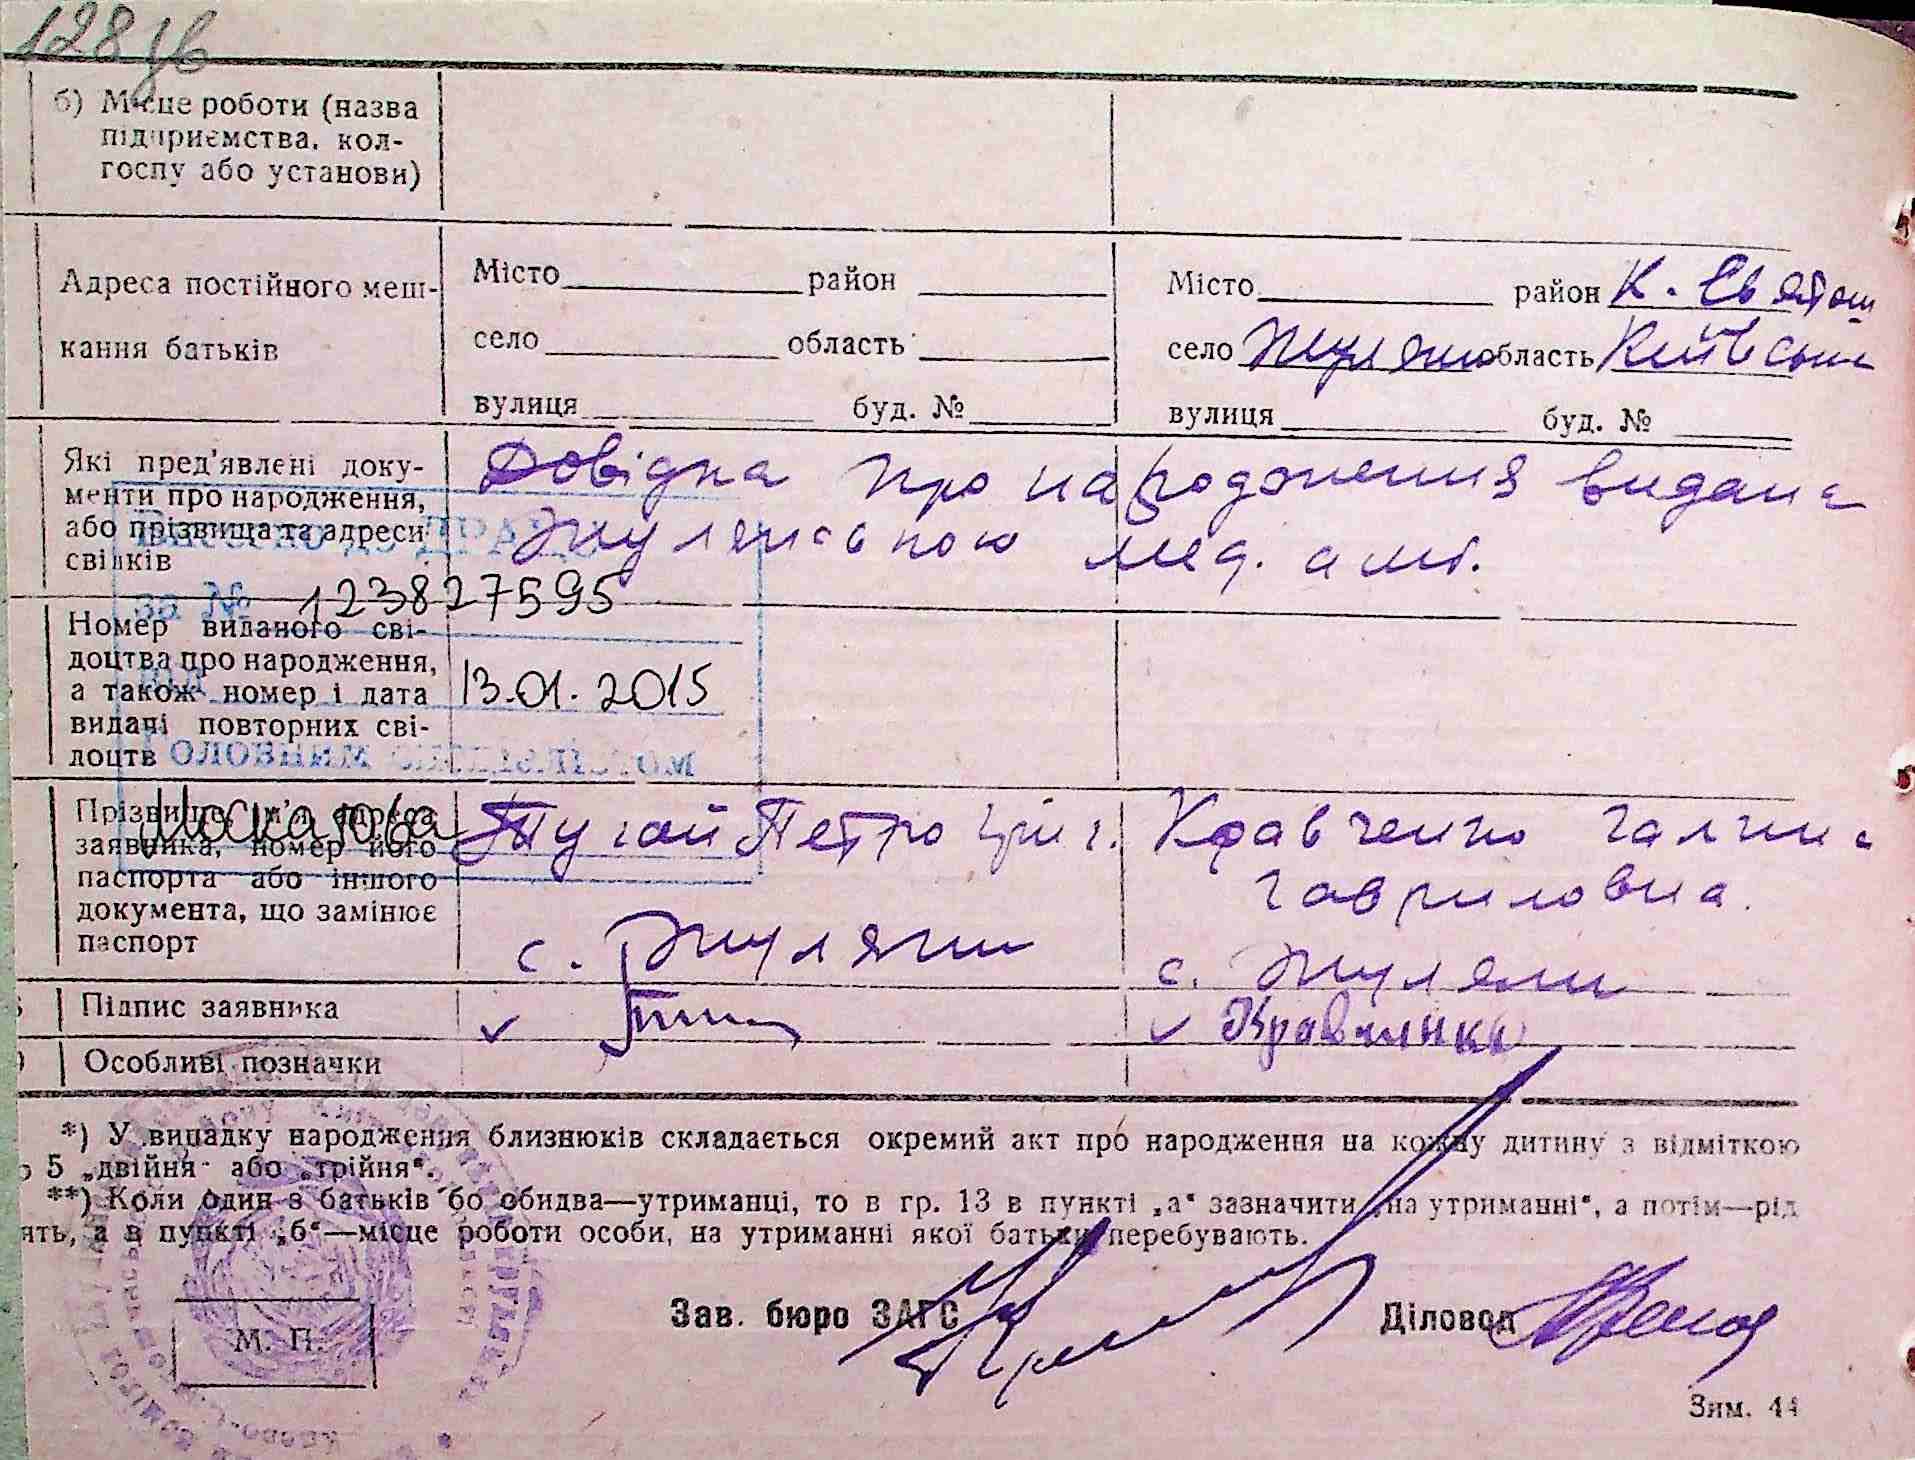 128 зв
б) Місце роботи (назва
підприємства, кол-
госпу або установи)
Адреса постійного меш-
кання батьків
Місто район
село область
вулиця буд. №
Місто район К. Святош
село Жуляни область Київська
вулиця буд. №
Які пред'явлені доку-
менти про народження,
або прізвища та адреси
свідків
Довідка про народження видана
Жулянською мед. амб.
Внесено до ДРАЦС
за № 1238227595
Номер виданого сві-
доцтва про народження,
а також номер і дата
видачі повторних сві-
доцтв
від 13.01.2015
Головним спеціалістом
Прізвище, ім'я, адреса
заявника, номер його
паспорта або іншого
документа, що замінює
паспорт
Пугай Петро Григ.
с. Жуляни
Кравченко Галина
Гавриловна.
с. Жуляни
Підпис заявника
Кравченко
Особливі позначки
*) У випадку народження близнюків складається окремий акт про народження на кожну дитину з відміткою
5 „двійня" або „трійня".
**) Коли один з батьків бо обидва—утриманці, то в гр. 13 в пункті „а" зазначити „на утриманні", а потім—рід
ять, а в пункті „б"—місце роботи особи, на утриманні якої батьки перебувають.
М. П.
Зав. бюро ЗАГС
Діловод
Зим. 44